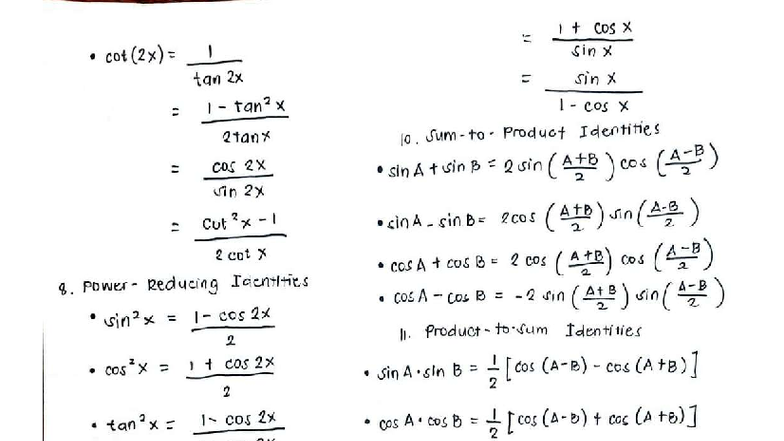 • cot(2x) = 1 / tan 2x
= 1 - tan²x / 2tanx
= cos 2x / sin 2x
= cot²x - 1 / 2 cot x
8. Power-Reducing Identities
• sin²x = 1 - cos 2x / 2
• cos²x = 1 + cos 2x / 2
• tan²x = 1- cos 2x
= 1 + cos x / sin x
= sin x / 1 - cos x
10. Sum-to-Product Identities
• sin A + sin B = 2 sin (A+B / 2) cos (A-B / 2)
• sin A - sin B = 2cos (A+B / 2) sin (A-B / 2)
• cos A + cos B = 2 cos (A+B / 2) cos (A-B / 2)
• cos A - cos B = -2 sin (A+B / 2) sin (A-B / 2)
11. Product-to-sum Identities
• sin A·sin B = 1/2 [cos (A-B) - cos (A+B)]
• cos A·cos B = 1/2 [cos (A-B) + cos (A+B)]